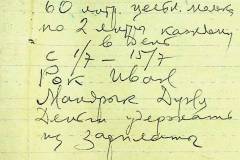 60 литр. цельн. молока
по 2 литра каждому
в день
с 1/7 – 15/7
Рок Иван
Мандрык Дуву
Деньги удержать
из зарплаты